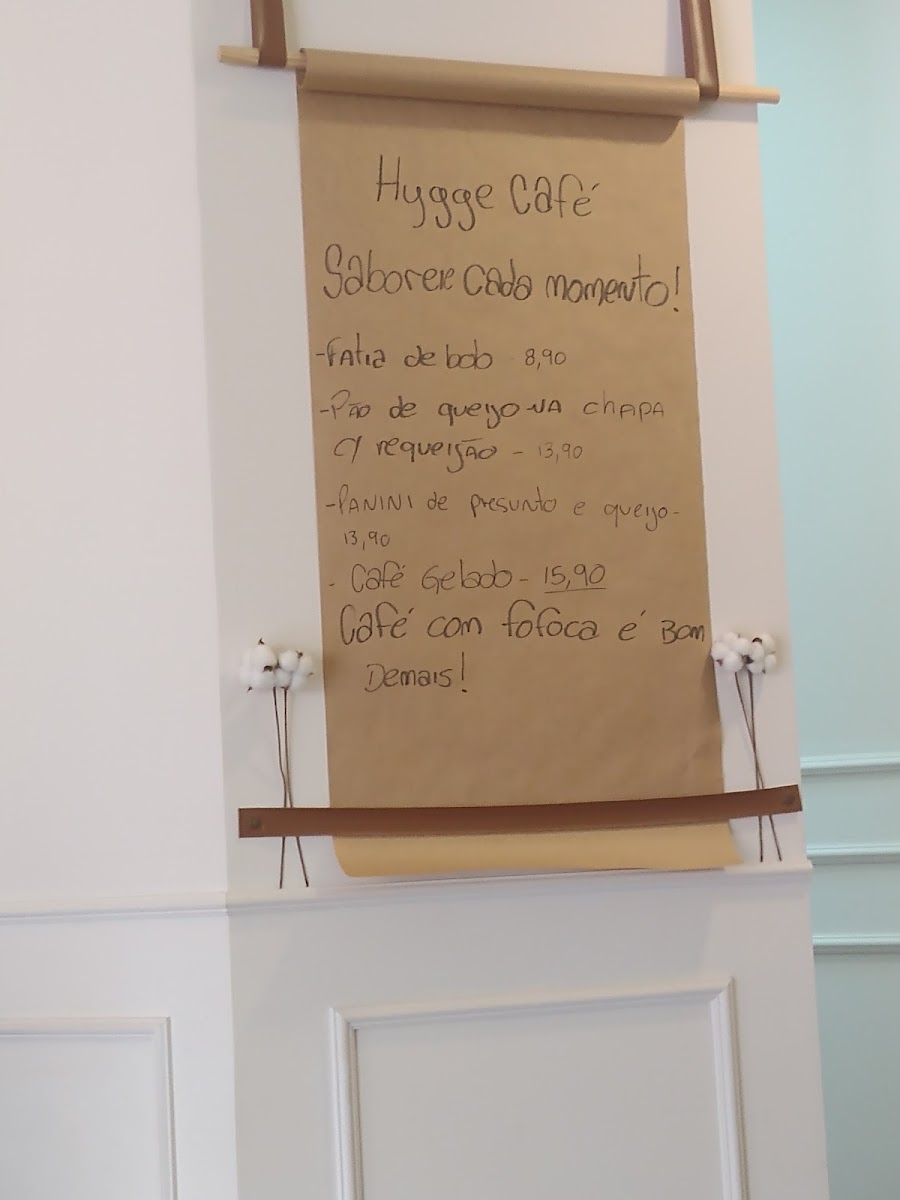 Hygge Café
Saboreie cada momento!
-Fatia de bolo 8,90
-Pão de queijo NA chAPA
c/ requeijão - 13,90
-PANINI de presunto e queijo-
13,90
- Café Gelado - 15,90
Café com fofoca é Bom
Demais!